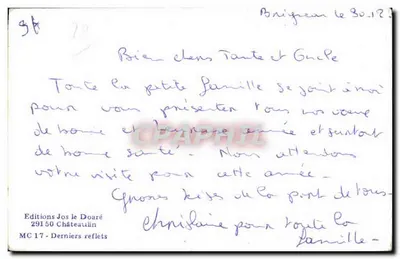 le 30.12.
Bien chers Tante et Oncle
Toute la petite famille se joint à moi
pour vous présenter tous nos vœux
de bonne et heureuse année et surtout
de bonne santé. Nous attendons
votre visite pour cette année.
Grosses bises de la part de tous.
Ghislaine pour toute la
famille.
Editions Jos le Doaré
29150 Châteaulin
MC 17 - Derniers reflets
CPAPHIL